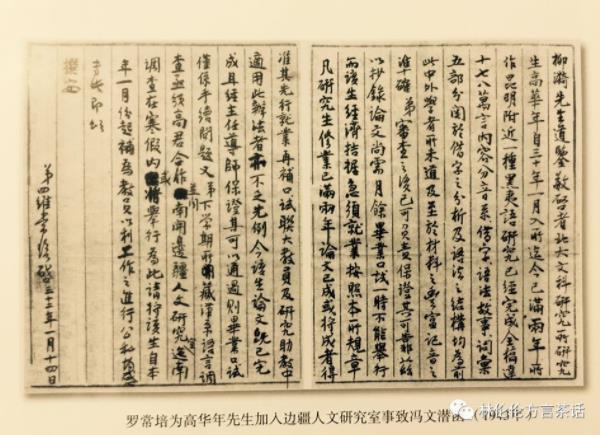 柳漪先生道鉴敬启者北大文科研究所研究
生高华年自三十年一月入所迄今已满两年所
作昆明附近一种黑夷语研究已经完成全稿达
十七八万言内容分音系借字语法故事词汇
五部分关于借字之分析及语法之结构均为前
此中外学者所未道及至于材料之丰富记音之
准确弟审查之后已可负责保证其可靠兹
以抄录论文尚需月余毕业口试一时不能举行
而该生经济拮据急须就业按照本所规章
凡研究生修业已满两年论文已成或将成者得
准其先行就业再补口试联大教员及研究助教中
适用此办法者不乏先例今该生论文既已完
成且经主任导师保证其可以通过则毕业口试
仅系手续问题又弟下学期所开藏汉系语言调
查正与高君合作南开边疆人文研究室滇南
调查在寒假内或将举行为此请将该生自本
年一月份起补为教员以利工作之进行公私均感
专此即颂
撰安
弟罗常培启三十二年一月十四日
罗常培为高华年先生加入边疆人文研究室事致冯文潜函(1943年)
林伦伦方言茶话